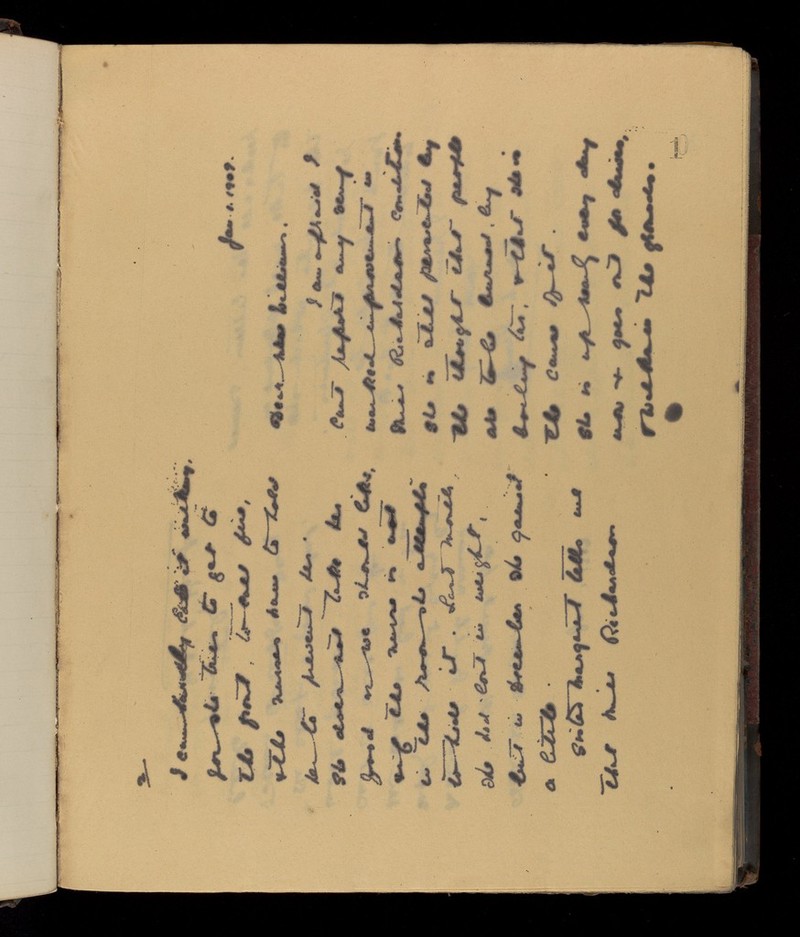 Jan. 1. 1909.
Dear Miss Williams.
I am afraid I
cant report any very
marked improvement in
Miss Richardson condition
She is still persecuted by
the thought that people
are to be burned, by
boiling tar, & that she is
the cause of it.
She is up nearly every day
now & goes out for drives,
& walks in the grounds.
2
I can hardly call it walking,
for she tries to get to
the front, to one fire,
& the nurses have to hold
her to prevent her.
She does not take her
food as we should like,
& if the nurse is not
in the room she attempts
to hide it. Last month,
she had lost in weight,
but in December she gained
a little.
Sister Margaret tells me
that Miss Richardson